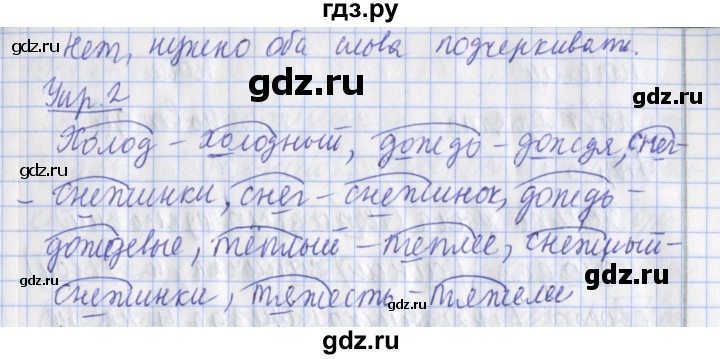 гдз.ру
Нет, нужно оба слова подчеркивать.
gdz.ru gdz.ru
Упр. 2
Холод - холодный, дождь - дождя, снег-
gdz.ru gdz.ru
- снежинки, снег - снежинок, дождь -
дождевые, тёплый - теплее, снежный-
gdz.ru gdz.ru
снежинки, тяжесть - тяжелее
gdz.ru gdz.ru